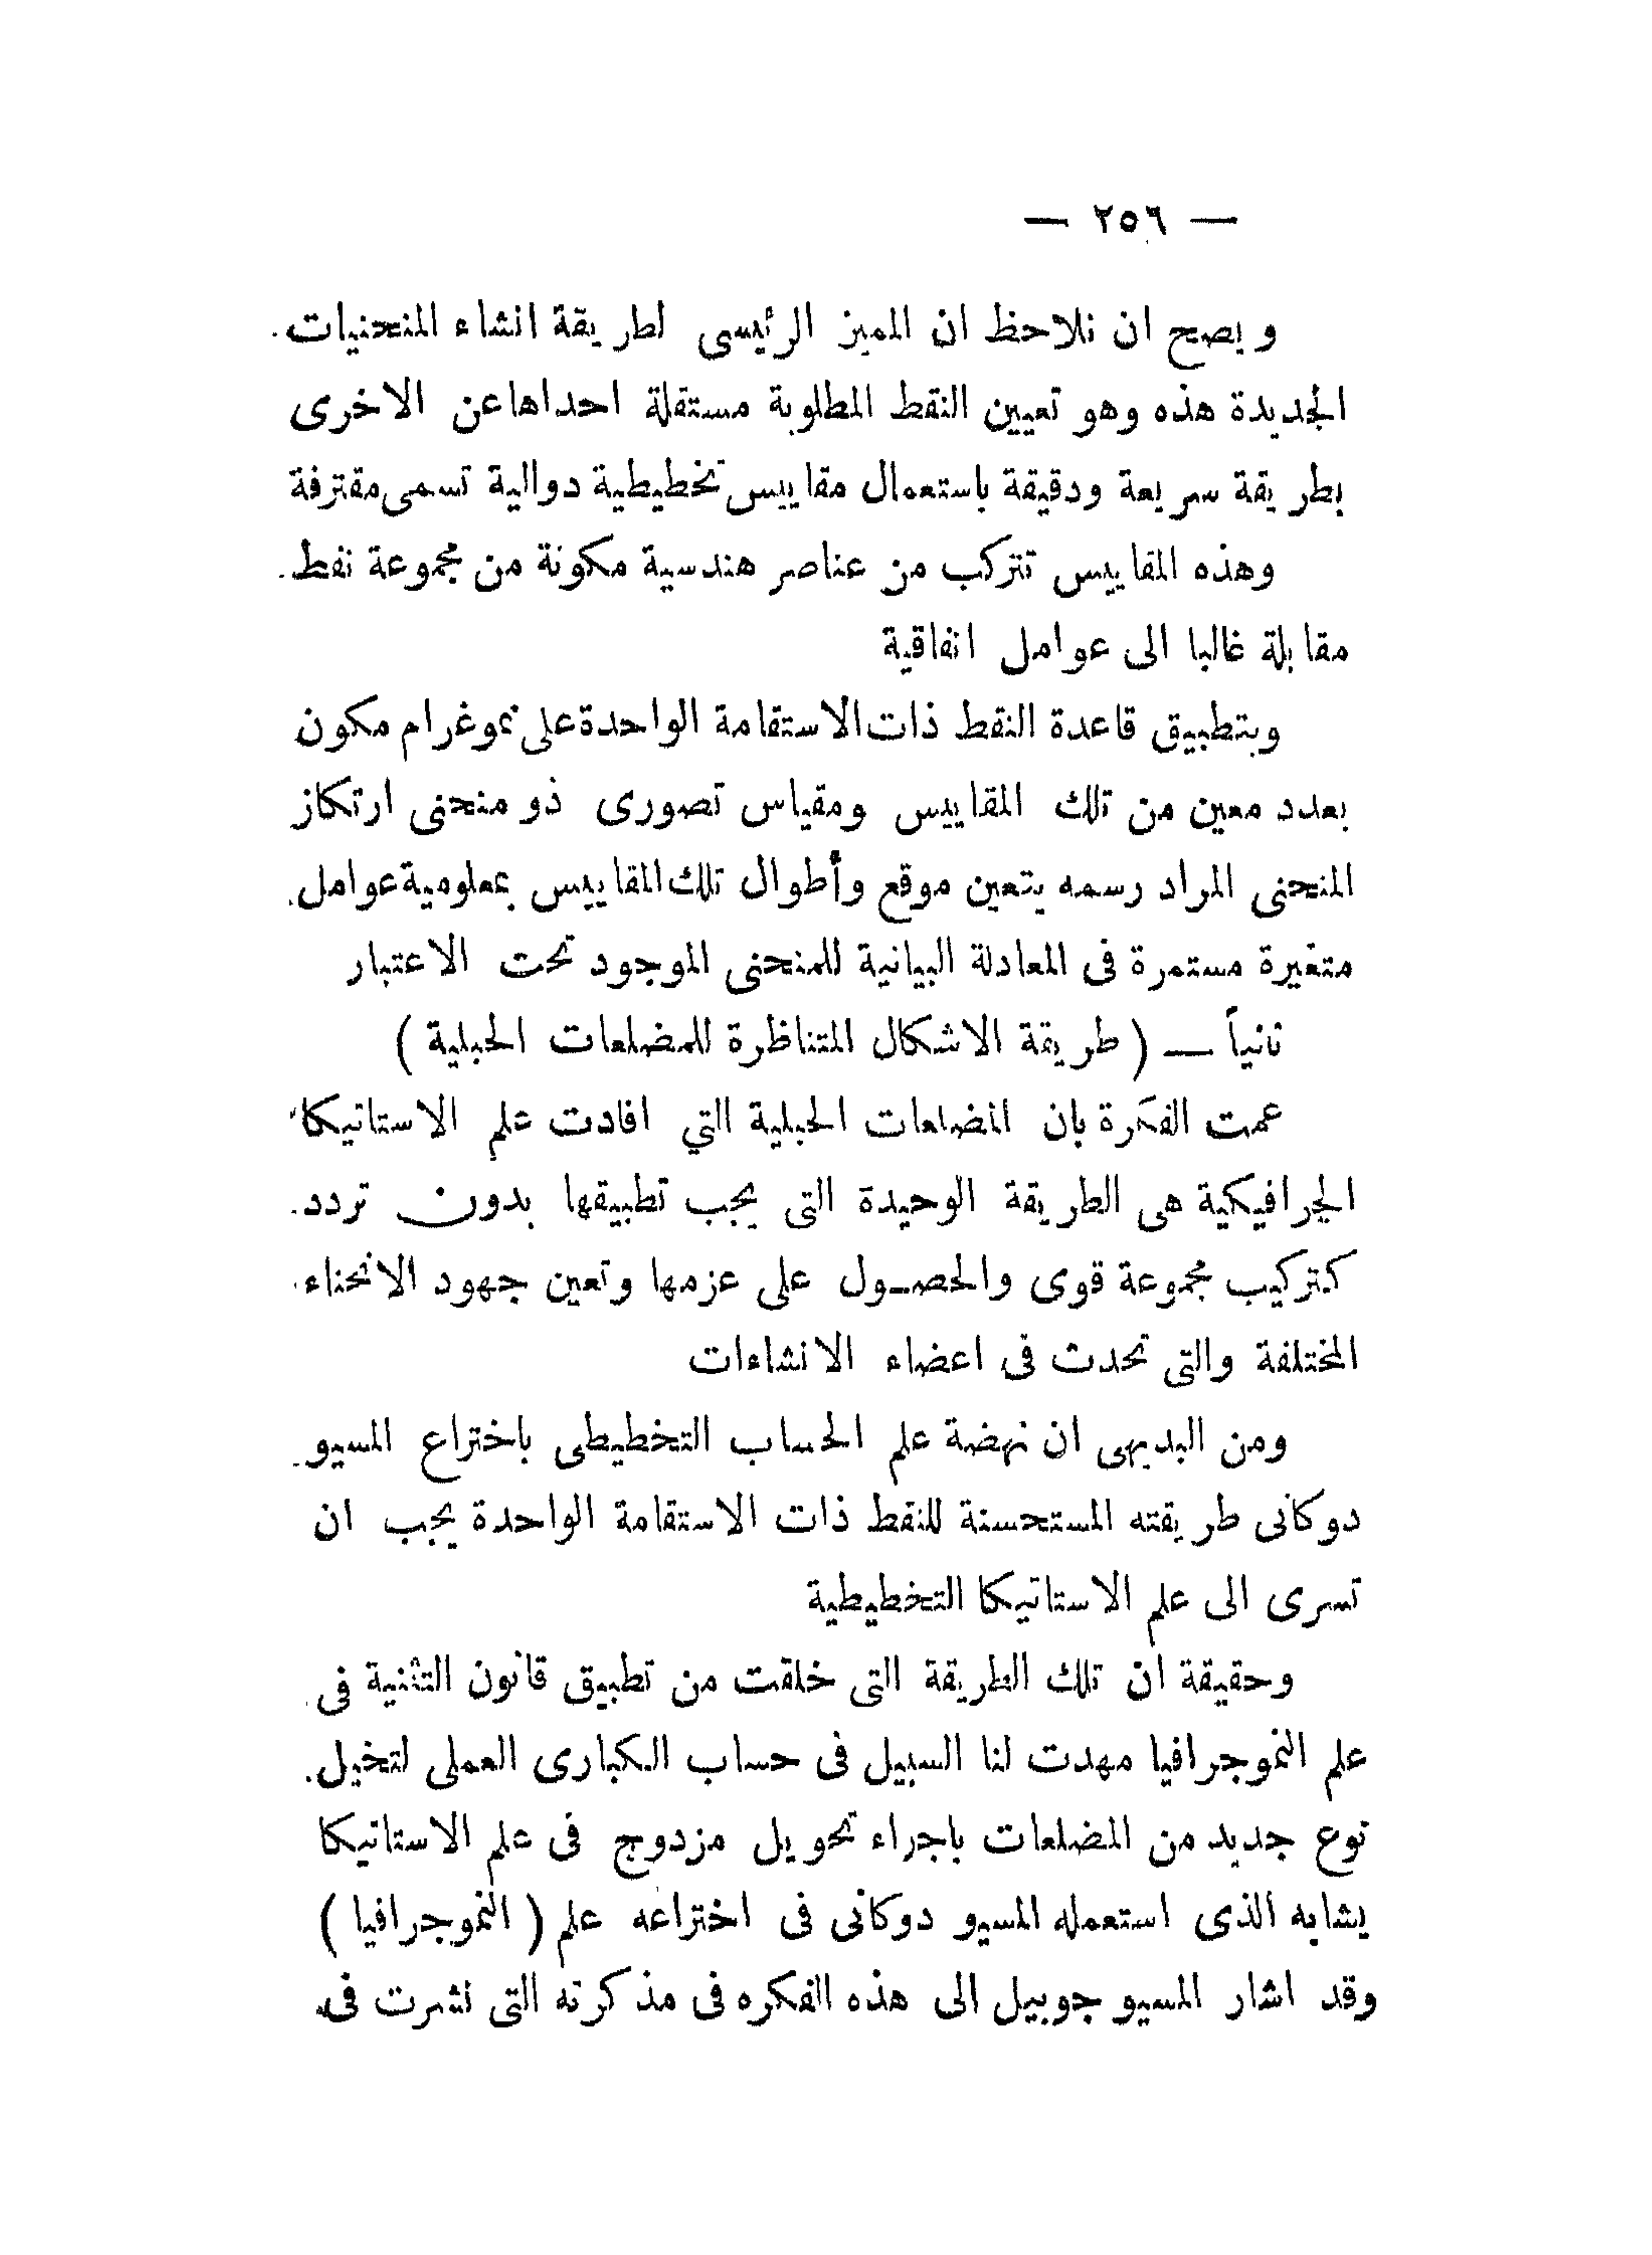 — ٢٥٦ —
ويصح ان نلاحظ ان المميز الرئيسى لطريقة انشاء المنحنيات
الجديدة هذه وهو تعيين النقط المطلوبة مستقلة احداها عن الاخرى
بطريقة سريعة ودقيقة باستعمال مقاييس تخطيطية دوالية تسمى مقترفة
وهذه المقاييس تتركب من عناصر هندسية مكونة من مجموعة نقط
مقابلة غالبا الى عوامل اتفاقية
وبتطبيق قاعدة النقط ذات الاستقامة الواحدة على نموغرام مكون
بعدد معين من تلك المقاييس ومقياس تصورى ذو منحنى ارتكاز
المنحنى المراد رسمه يتعين موقع وأطوال تلك المقاييس بمعلومية عوامل
متغيرة مستمرة فى المعادلة البيانية للمنحنى الموجود تحت الاعتبار
ثانياً — ( طريقة الاشكال المتناظرة للمضلعات الحبلية )
عمت الفكرة بان المضلعات الحبلية التي افادت علم الاستاتيكا
الجرافيكية هى الطريقة الوحيدة التى يجب تطبيقها بدون تردد
كتركيب مجموعة قوى والحصول على عزمها وتعين جهود الانحناء
المختلفة والتى تحدث فى اعضاء الانشاءات
ومن البديهى ان نهضة علم الحساب التخطيطى باختراع المسيو
دوكانى طريقته المستحسنة للنقط ذات الاستقامة الواحدة يجب ان
تسرى الى علم الاستاتيكا التخطيطية
وحقيقة ان تلك الطريقة التى خلقت من تطبيق قانون التثنية فى
علم النموجرافيا مهدت لنا السبيل فى حساب الكبارى العملى لتخيل
نوع جديد من المضلعات باجراء تحويل مزدوج فى علم الاستاتيكا
يشابه الذى استعمله المسيو دوكانى فى اختراعه علم ( النموجرافيا )
وقد اشار المسيو جوبيل الى هذه الفكره فى مذكرته التى نشرت فى